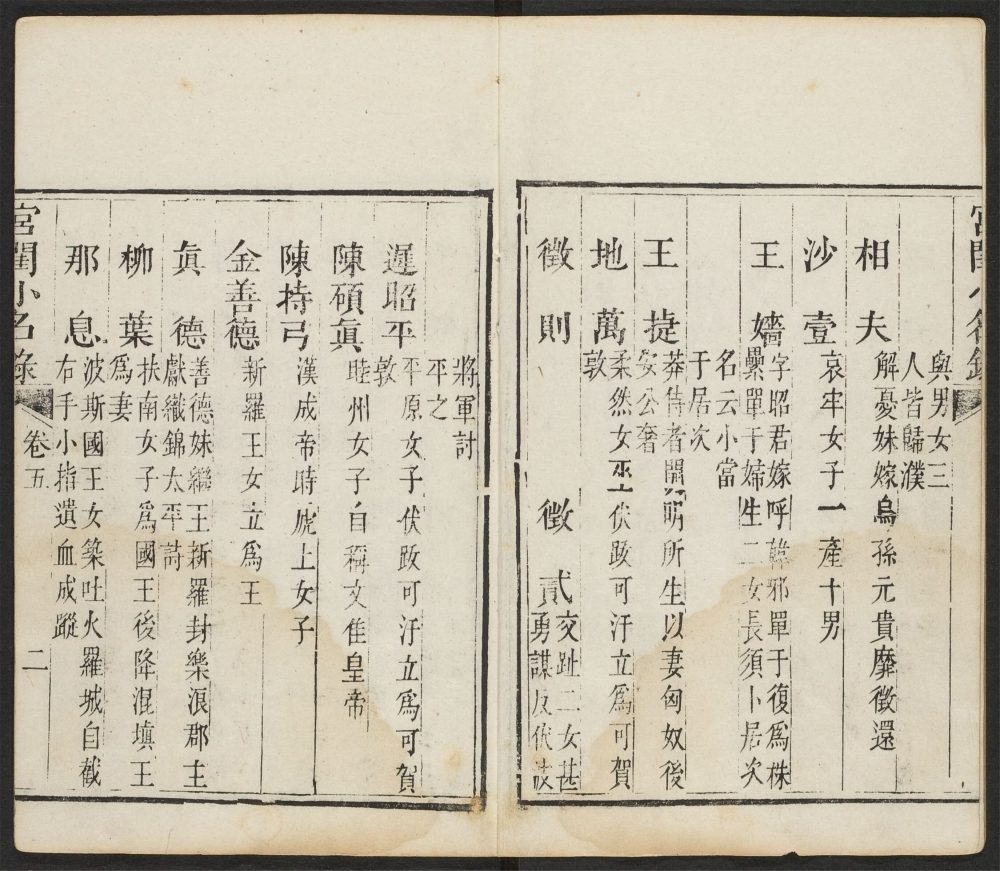 宮閨小名錄
與男女三
人皆歸濮
相夫 解憂妹嫁烏孫元貴靡徵還
沙壹 哀牢女子一產十男
王嬙 字昭君嫁呼韓邪單于復爲株
纍單于婦生二女長須卜居次
名云小當
于居次
王㨗 莽侍者開明所生以妻匈奴後
安公奢
地萬 柔然女巫伏跋可汗立爲可賀
敦
徵則 徵貳 交趾二女甚
勇謀反伏波
將軍討
平之
遲昭平 平原女子伏跋可汗立爲可賀
敦
陳碩眞 睦州女子自稱文佳皇帝
陳持弓 漢成帝時虒上女子
金善德 新羅王女立爲王
眞德 善德妹繼王新羅封樂浪郡主
獻織錦太平詩
柳葉 扶南女子爲國王後降混填王
爲妻
那息 波斯國王女築吐火羅城自截
右手小指遺血成蹤
宮閨小名錄 卷五 二